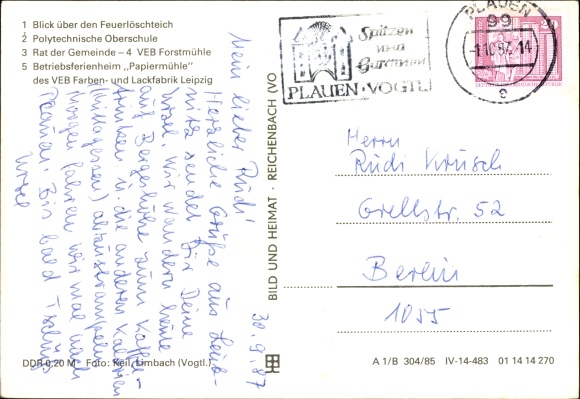 1 Blick über den Feuerlöschteich
2 Polytechnische Oberschule
3 Rat der Gemeinde – 4 VEB Forstmühle
5 Betriebsferienheim „Papiermühle"
des VEB Farben- und Lackfabrik Leipzig
PLAUEN
99
-1.10.87.-14
a
Spitzen
und
Gardinen
PLAUEN · VOGTL
20
30.9.87
Mein lieber Rudi!
Herzliche Grüße aus
sendet Dir Deine
Ursel. Wir wandern heute
auf Bergeshöhe zum Kaffee-
trinken u. die anderen Kalorien
(Mittagessen) abzustrampeln.
Morgen fahren wir mal nach
Plauen. Bis bald Tschüs
Ursel
BILD UND HEIMAT · REICHENBACH (VO
Herrn
Rudi Krusch
Grellstr. 52
Berlin
1055
DDR 0,20 M Foto: Keil, Limbach (Vogtl.)
A 1/B 304/85 IV-14-483 01 14 14 270